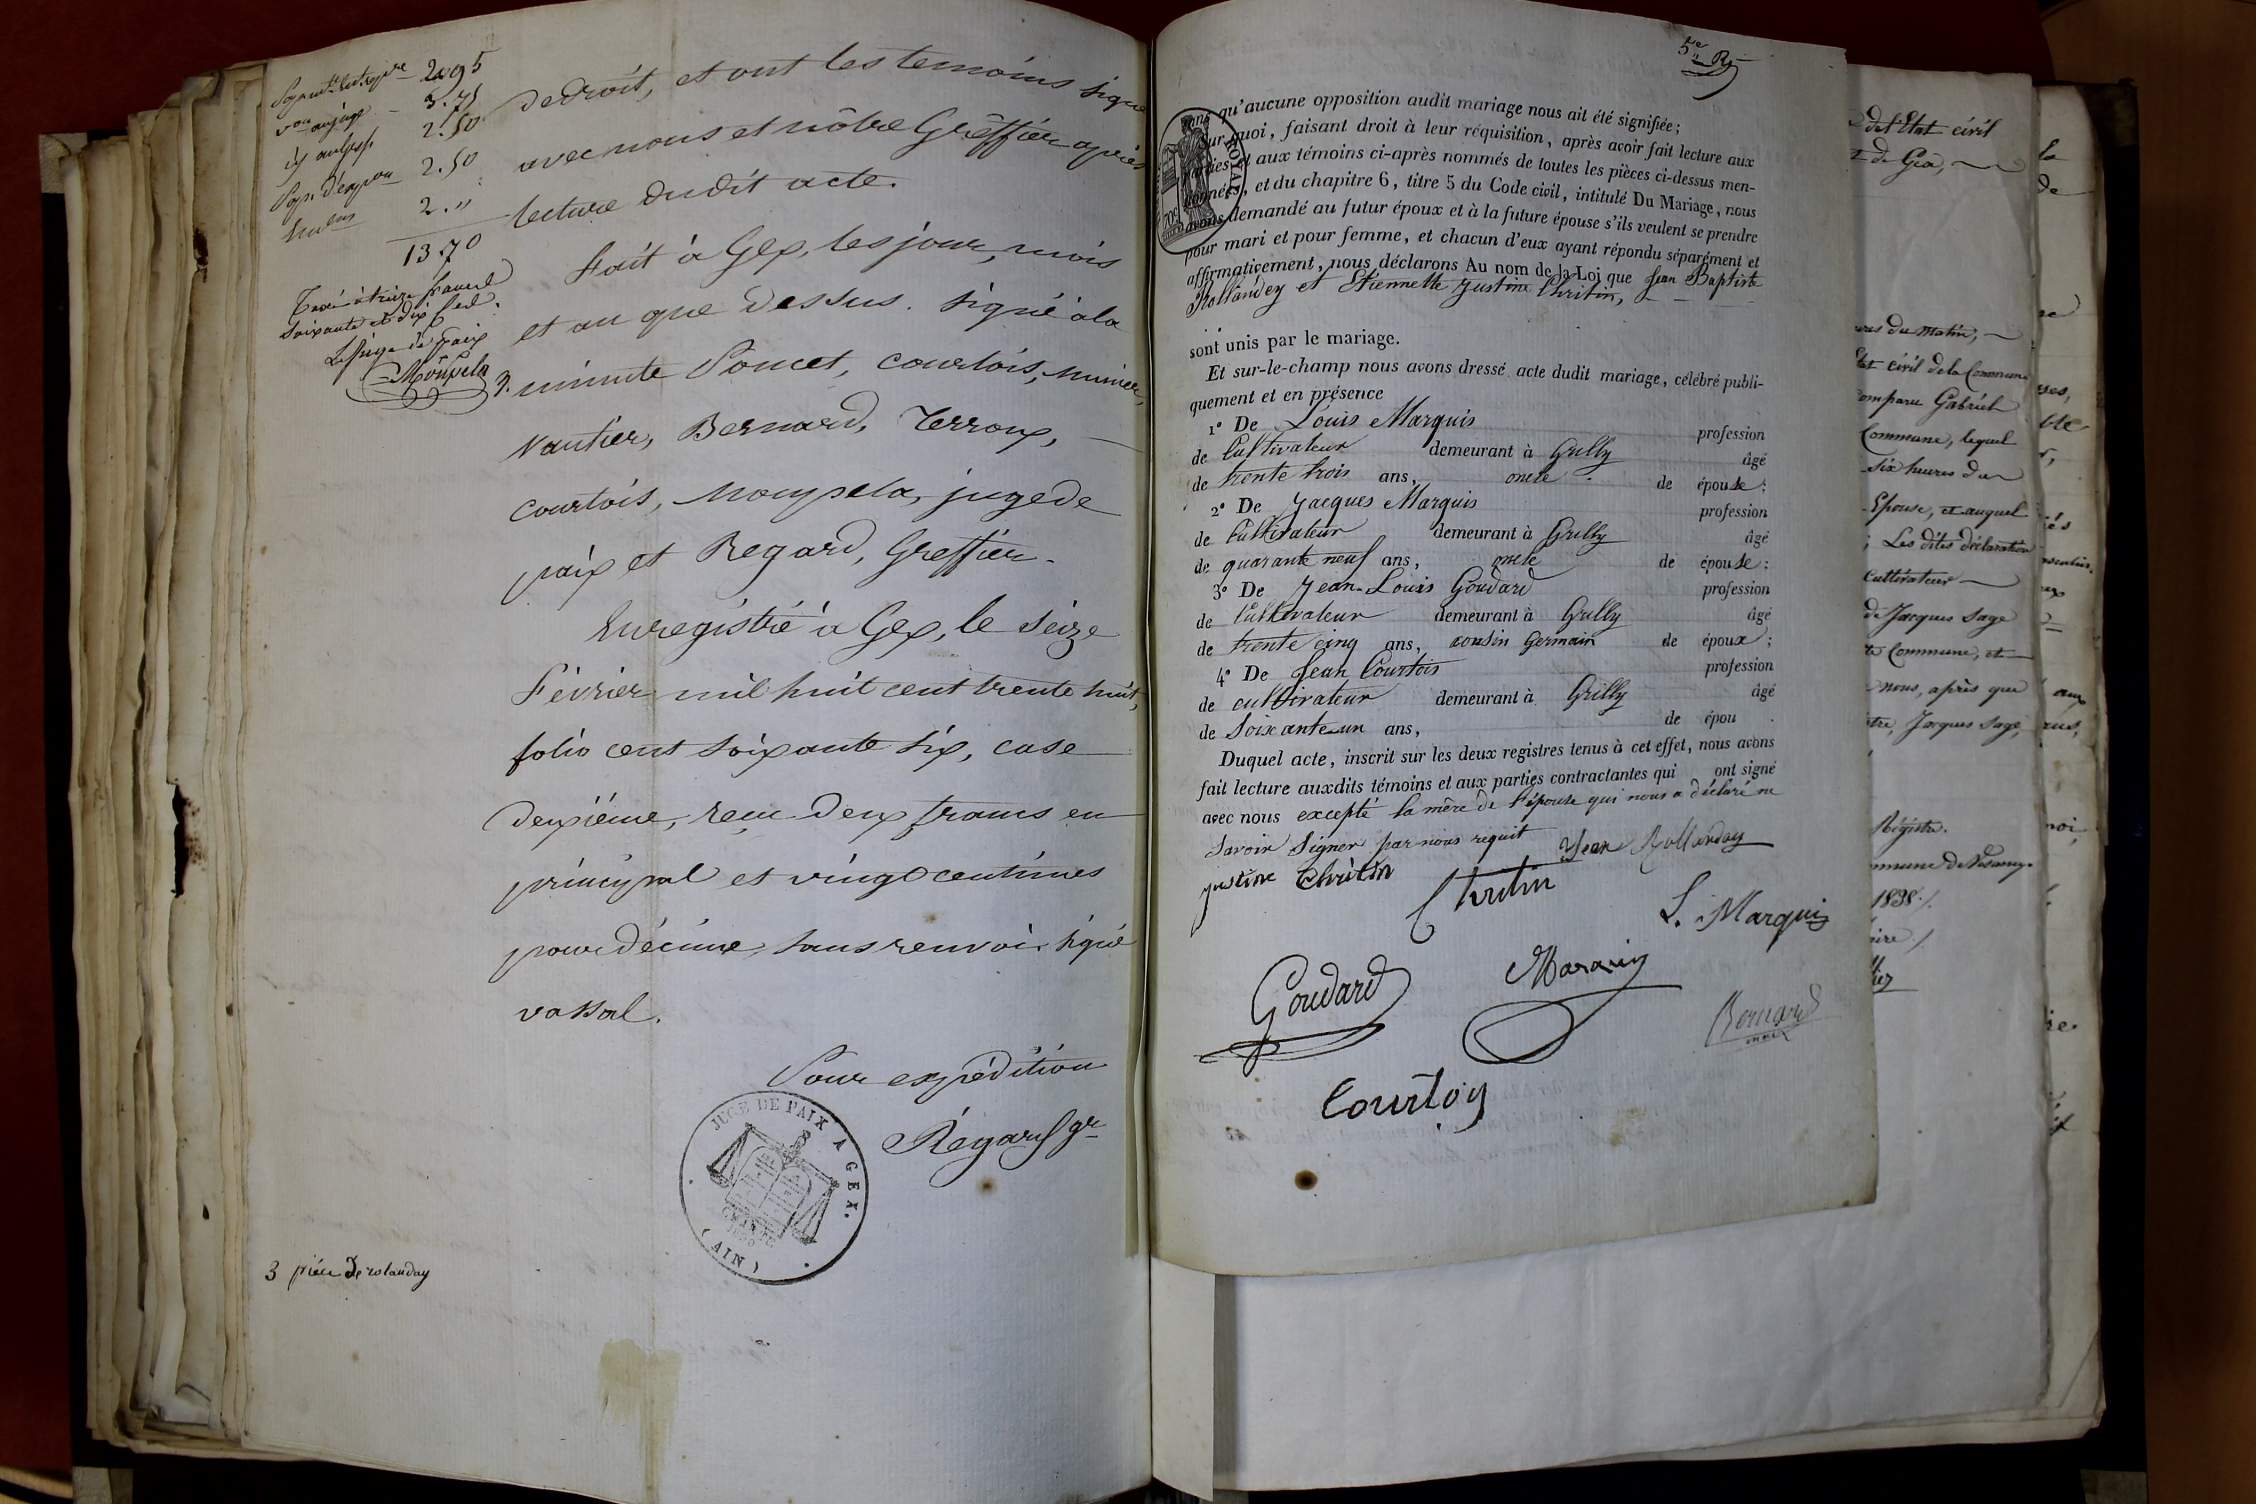 2.95
3.75
2.50
2.50
2.〃
13.70
Taxé à treize francs
soixante et dix cent.
Le Juge de paix
de droit, et ont les temoins signé
avec nous et nôtre Greffier après
lecture dudit acte.
Fait à Gex, les jour, mois
et an que dessus. Signé à la
minute Poncet, courtois, Munier,
Vautier, Bernard, Terroux,
courtois, juge de
paix et Regard, Greffier.
Enregistré à Gex, le seize
Février mil huit cent trente huit,
folio cent soixante six, case
deuxième, reçu deux francs en
principal et vingt centimes
pour décime, sans renvoi. signé
vassal.
Pour expédition
Régard gr
JUGE DE PAIX A GEX.
(AIN)
3 pièce de rolanday
5e
sans qu'aucune opposition audit mariage nous ait été signifiée;
Sur quoi, faisant droit à leur réquisition, après avoir fait lecture aux
parties et aux témoins ci-après nommés de toutes les pièces ci-dessus men-
tionnées, et du chapitre 6, titre 5 du Code civil, intitulé Du Mariage, nous
avons demandé au futur époux et à la future épouse s'ils veulent se prendre
pour mari et pour femme, et chacun d'eux ayant répondu séparément et
affirmativement, nous déclarons Au nom de la Loi que Jean Baptiste
Rollandey et Etiennette Justine Chritin,
sont unis par le mariage.
Et sur-le-champ nous avons dressé acte dudit mariage, célébré publi-
quement et en présence
1° De Louis Marquis profession
de Cultivateur demeurant à Grilly âgé
de trente trois ans, oncle de épouse;
2° De Jacques Marquis profession
de Cultivateur demeurant à Grilly âgé
de quarante neuf ans, oncle de épouse;
3° De Jean-Louis Goudard profession
de Cultivateur demeurant à Grilly âgé
de trente cinq ans, cousin Germain de époux;
4° De Jean Courtois profession
de cultivateur demeurant à Grilly âgé
de Soixante un ans, de épou .
Duquel acte, inscrit sur les deux registres tenus à cet effet, nous avons
fait lecture auxdits témoins et aux parties contractantes qui ont signé
avec nous excepté la mère de l'épouse qui nous a déclaré ne
Savoir Signer par nous requit
Jean Rollanday
Justine Chritin
Chritin
L. Marquis
Goudard
Marquis
Bernard
Courtois
ROYAL
70c
de l'Etat civil
t de Gex,
ures du Matin;
Etat civil de la Commune
comparu Gabriel
Commune, lequel
six heures du
Epouse, et auquel
; Les dites déclaration
Cultivateur
de Jacques Sage
te Commune, et
nous, après que
Jacques Sage,
Régistre.
1838./.
la
de